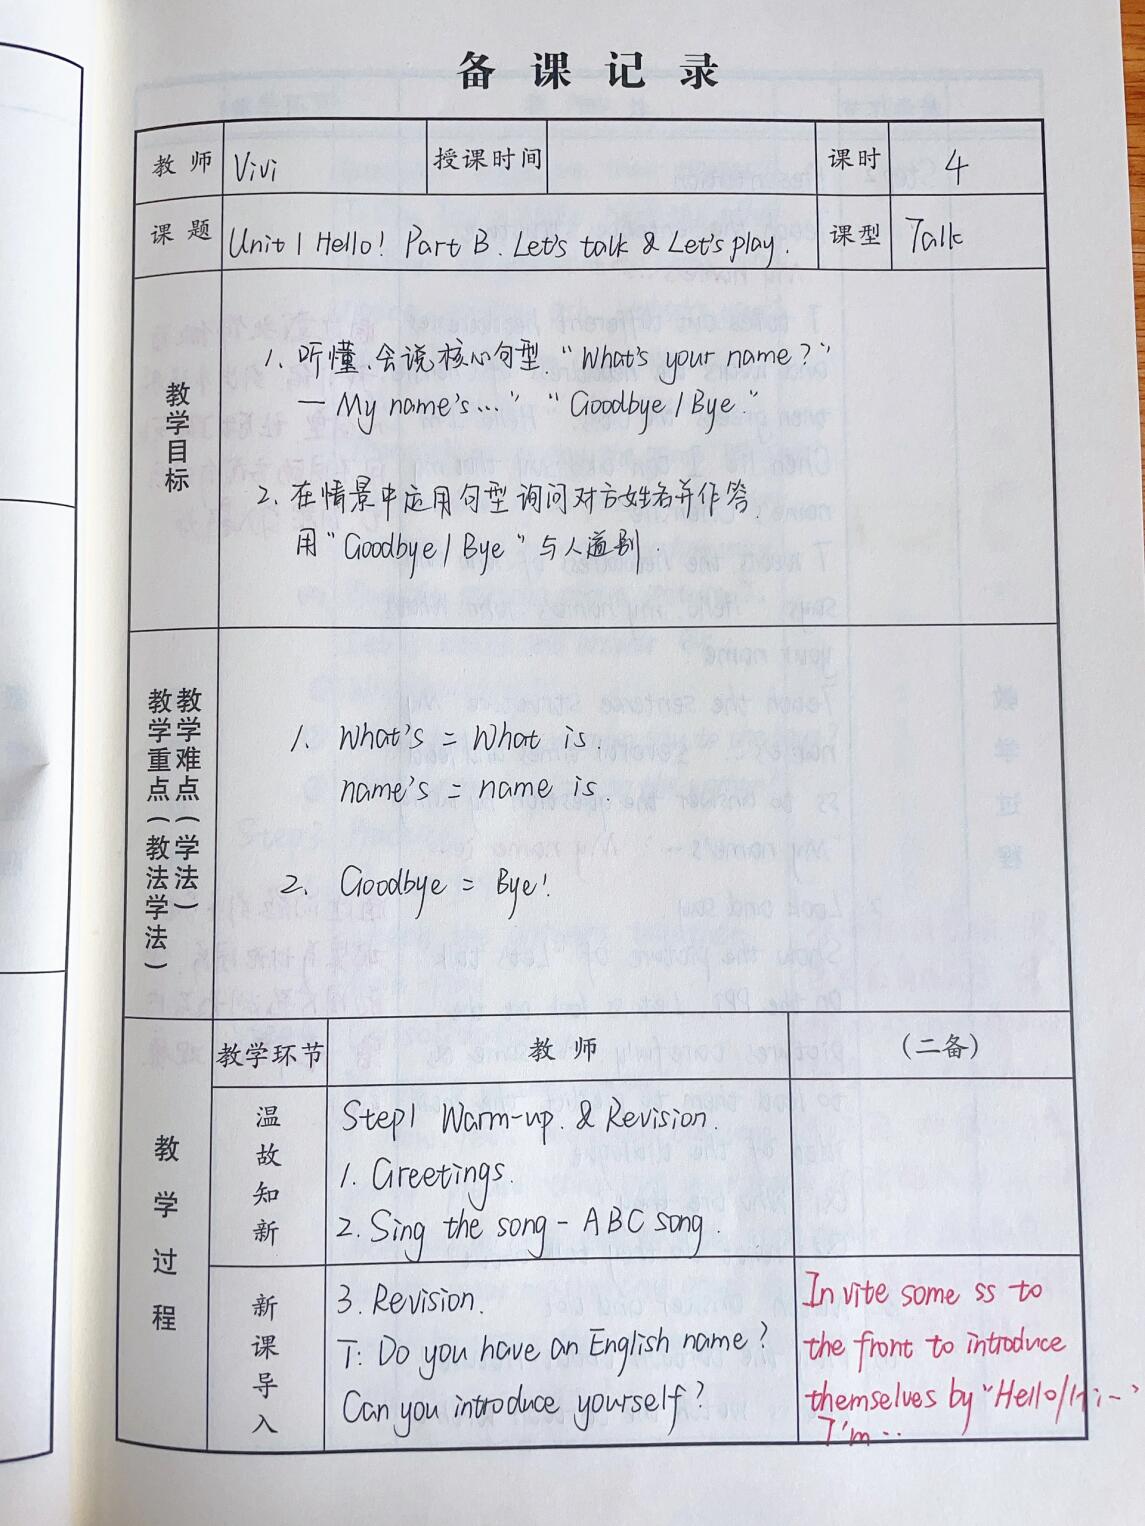 备课记录
教师 Vivi 授课时间 课时 4
课题 Unit 1 Hello! Part B. Let's talk & Let's play. 课型 Talk
教学目标
1. 听懂、会说核心句型. "What's your name?"
— My name's..." "Goodbye / Bye."
2. 在情景中应用句型询问对方姓名并作答.
用"Goodbye / Bye"与人道别.
教学重点（教法学法）
教学难点（学法）
1. What's = What is.
name's = name is.
2. Goodbye = Bye!
教学过程
教学环节 教师 （二备）
温故知新
Step1 Warm-up. & Revision.
1. Greetings.
2. Sing the song - ABC song.
新课导入
3. Revision.
T: Do you have an English name?
Can you introduce yourself?
Invite some ss to
the front to introduce
themselves by "Hello/Hi..."
I'm...